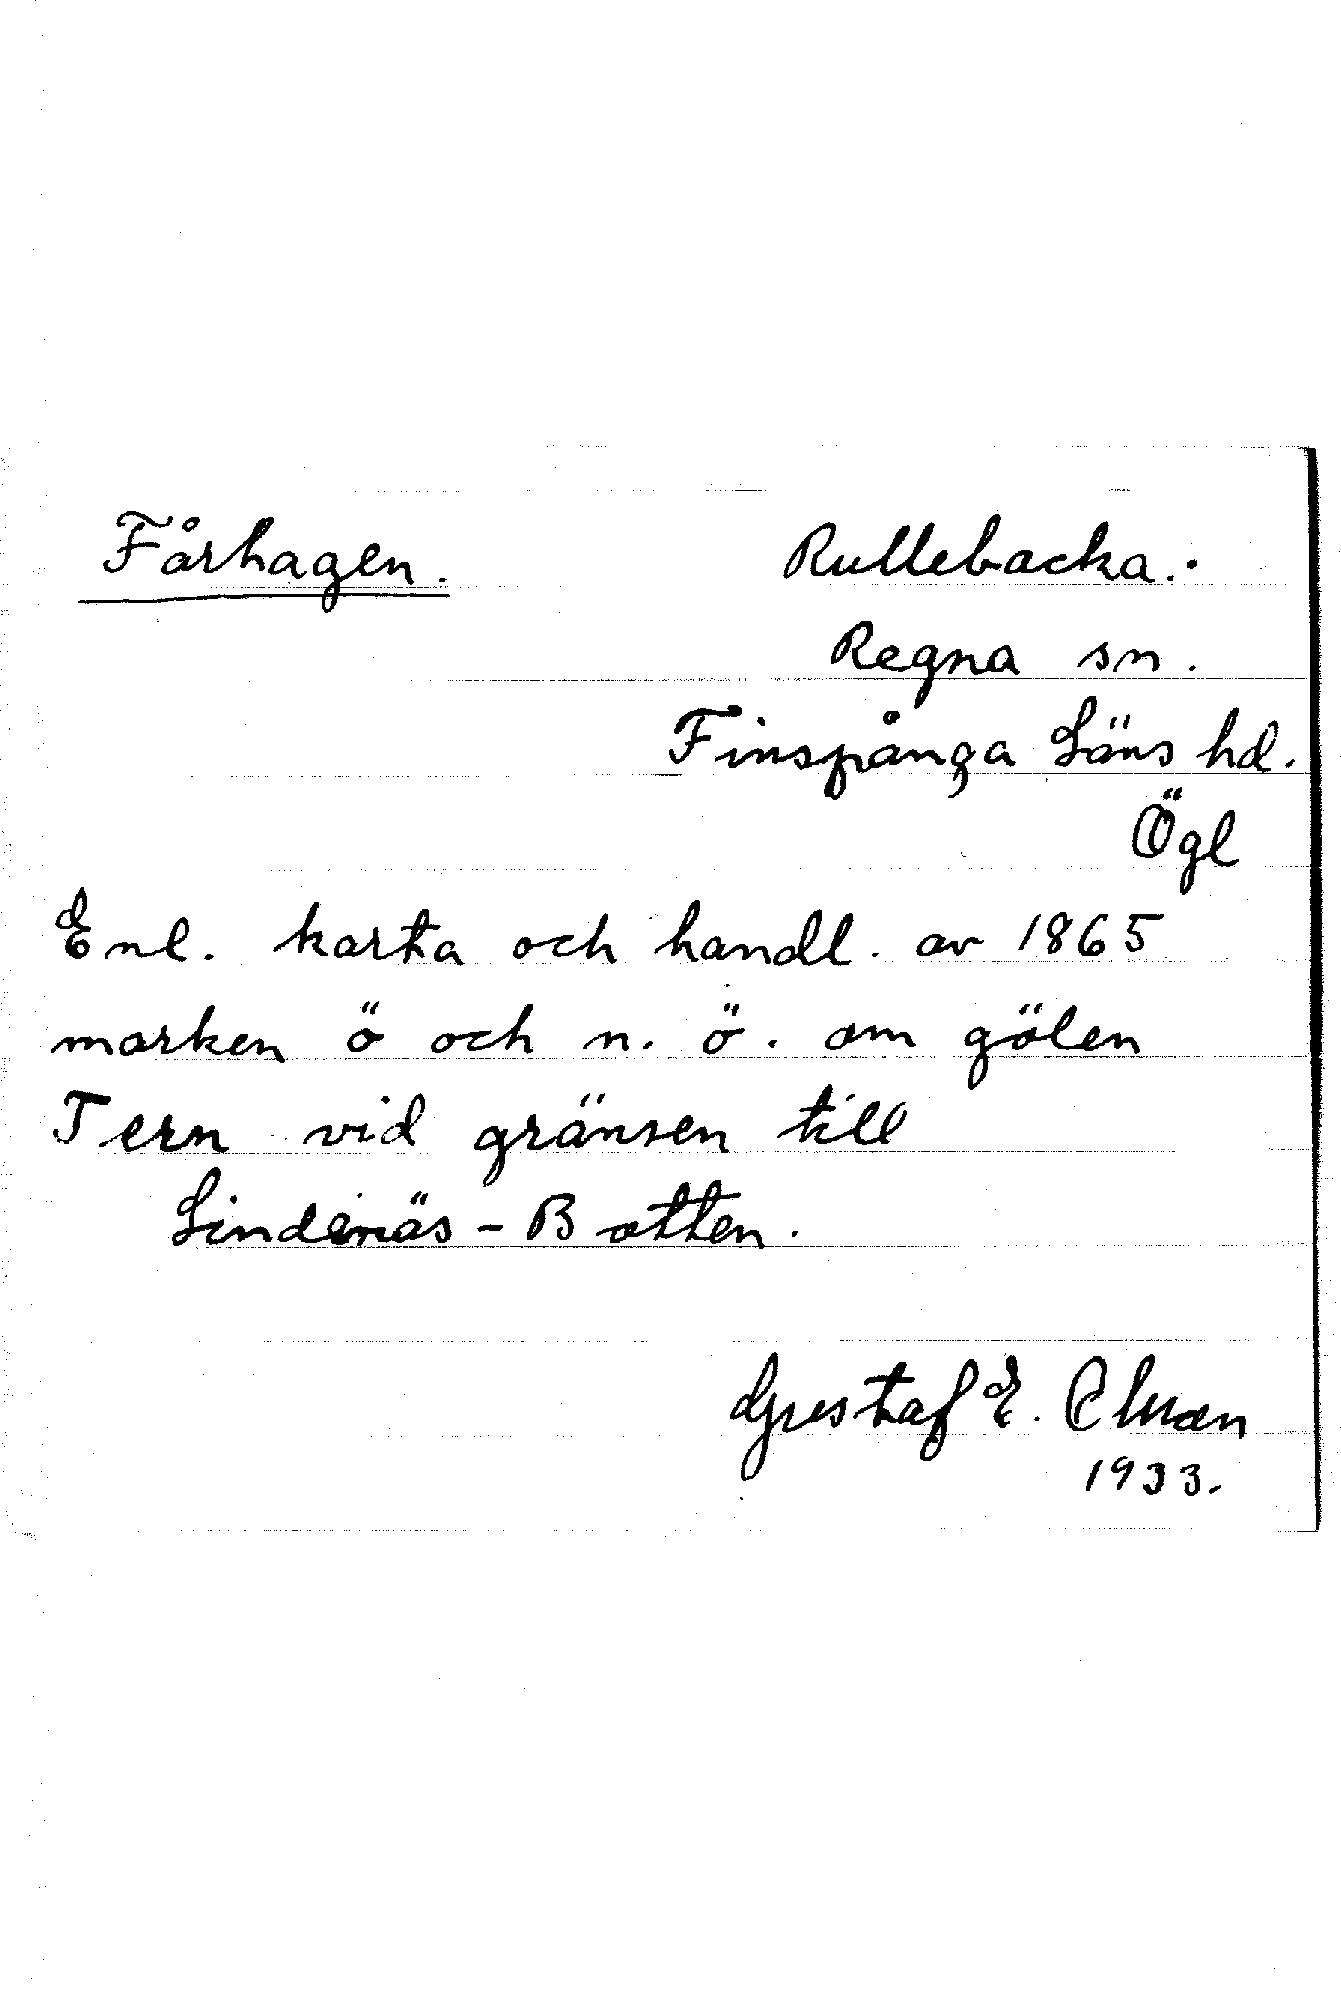 Fårhagen. Rullebacka.
Regna sn.
Finspånga Läns hd.
Ögl
Enl. karta och handl. av 1865
marken ö och n. ö. om gölen
Tern vid gränsen till
Lindenäs - Botten.
Gustaf E.
1933.